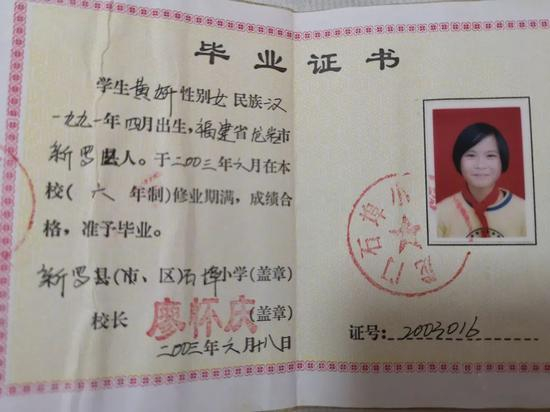 毕业证书
学生黄妍性别女民族汉
一九九一年四月出生，福建省龙岩市
新罗县人。于二〇〇三年六月在本
校(六年制)修业期满，成绩合
格，准予毕业。
新罗县(市、区)石埠小学(盖章)
校长 廖怀庆 (盖章)
二〇〇三年六月十八日
证号：2003016
石埠